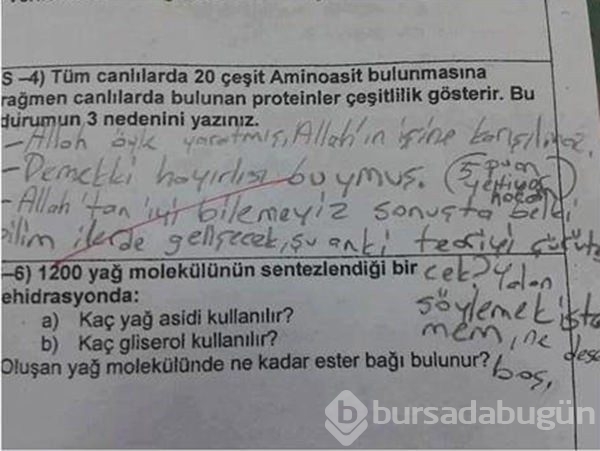 S –4) Tüm canlılarda 20 çeşit Aminoasit bulunmasına
rağmen canlılarda bulunan proteinler çeşitlilik gösterir. Bu
durumun 3 nedenini yazınız.
- Allah öyle yaratmış, Allah'ın işine karışılmaz.
- Demekki hayırlısı buymuş. (5 puan
yetiyor
hocam)
- Allah'tan iyi bilemeyiz sonuşta belki
bilim ilerde gelişecek, şu anki teoriyi çürüte
cek? Yalan
söylemek iste
mem, ne desem
boş,
–6) 1200 yağ molekülünün sentezlendiği bir
ehidrasyonda:
a) Kaç yağ asidi kullanılır?
b) Kaç gliserol kullanılır?
Oluşan yağ molekülünde ne kadar ester bağı bulunur?
b bursadabugün